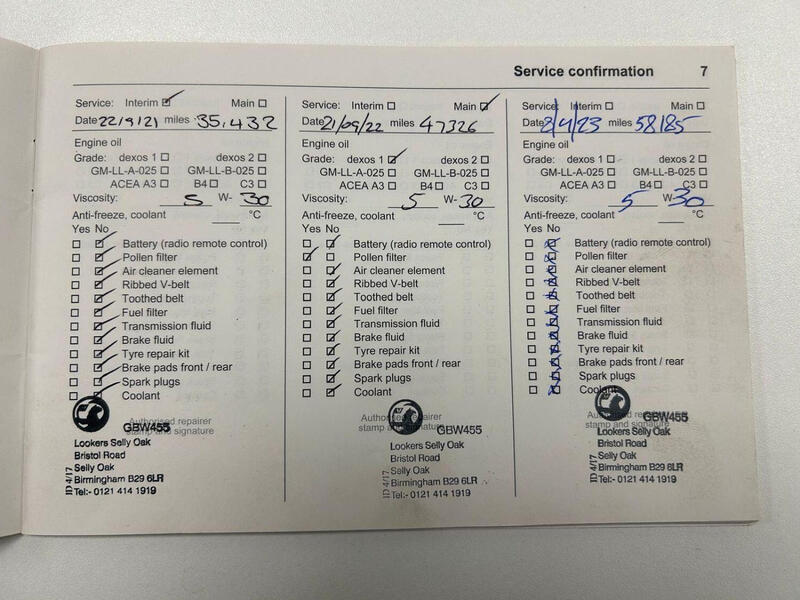 Service confirmation 7
Service: Interim ☑ Main ☐
Date 22/9/21 miles 35,432
Engine oil
Grade: dexos 1 ☐ dexos 2 ☐
GM-LL-A-025 ☐ GM-LL-B-025 ☐
ACEA A3 ☐ B4 ☐ C3 ☐
Viscosity: 5 W- 30
Anti-freeze, coolant ___ °C
Yes No
☐ ☑ Battery (radio remote control)
☐ ☑ Pollen filter
☐ ☑ Air cleaner element
☐ ☑ Ribbed V-belt
☐ ☑ Toothed belt
☐ ☑ Fuel filter
☐ ☑ Transmission fluid
☐ ☑ Brake fluid
☐ ☑ Tyre repair kit
☐ ☑ Brake pads front / rear
☐ ☑ Spark plugs
☐ ☑ Coolant
Authorised repairer
stamp and signature
GBW455
Lookers Selly Oak
Bristol Road
Selly Oak
Birmingham B29 6LR
Tel:- 0121 414 1919
ID 4/17
Service: Interim ☐ Main ☑
Date 21/09/22 miles 47326
Engine oil
Grade: dexos 1 ☑ dexos 2 ☐
GM-LL-A-025 ☐ GM-LL-B-025 ☐
ACEA A3 ☐ B4 ☐ C3 ☐
Viscosity: 5 W- 30
Anti-freeze, coolant ___ °C
Yes No
☐ ☑ Battery (radio remote control)
☑ ☐ Pollen filter
☐ ☑ Air cleaner element
☐ ☑ Ribbed V-belt
☐ ☑ Toothed belt
☐ ☑ Fuel filter
☐ ☑ Transmission fluid
☐ ☑ Brake fluid
☐ ☑ Tyre repair kit
☐ ☑ Brake pads front / rear
☐ ☑ Spark plugs
☐ ☑ Coolant
Authorised repairer
stamp and signature
GBW455
Lookers Selly Oak
Bristol Road
Selly Oak
Birmingham B29 6LR
Tel:- 0121 414 1919
ID 4/17
Service: Interim ☐ Main ☐
Date /23 miles 58185
Engine oil
Grade: dexos 1 ☐ dexos 2 ☐
GM-LL-A-025 ☐ GM-LL-B-025 ☐
ACEA A3 ☐ B4 ☐ C3 ☐
Viscosity: 5 W- 30
Anti-freeze, coolant ___ °C
Yes No
☐ ☒ Battery (radio remote control)
☐ ☒ Pollen filter
☐ ☒ Air cleaner element
☐ ☒ Ribbed V-belt
☐ ☒ Toothed belt
☐ ☒ Fuel filter
☐ ☒ Transmission fluid
☐ ☒ Brake fluid
☐ ☒ Tyre repair kit
☐ ☒ Brake pads front / rear
☐ ☒ Spark plugs
☐ ☒ Coolant
Authorised repairer
stamp and signature
GBW455
Lookers Selly Oak
Bristol Road
Selly Oak
Birmingham B29 6LR
Tel:- 0121 414 1919
ID 4/17